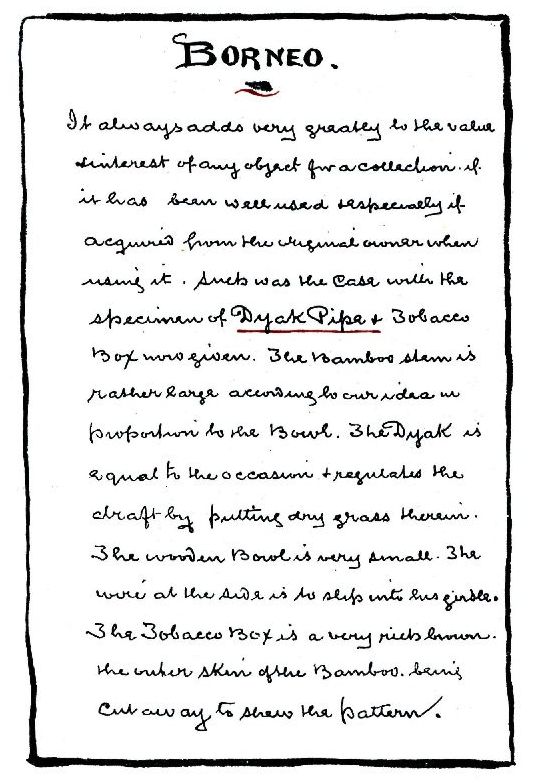 BORNEO.
It always adds very greatly to the value
& interest of any object for a collection. if
it has been well used & especially if
acquired from the original owner when
using it. Such was the Case with the
specimen of Dyak Pipe & Tobacco
Box now given. The Bamboo stem is
rather large according to our idea in
proportion to the Bowl. The Dyak is
equal to the occasion & regulates the
draft by putting dry grass therein.
The wooden Bowl is very small. The
wire at the side is to slip into his girdle.
The Tobacco Box is a very rich brown.
the outer skin of the Bamboo. being
cut away to shew the pattern.